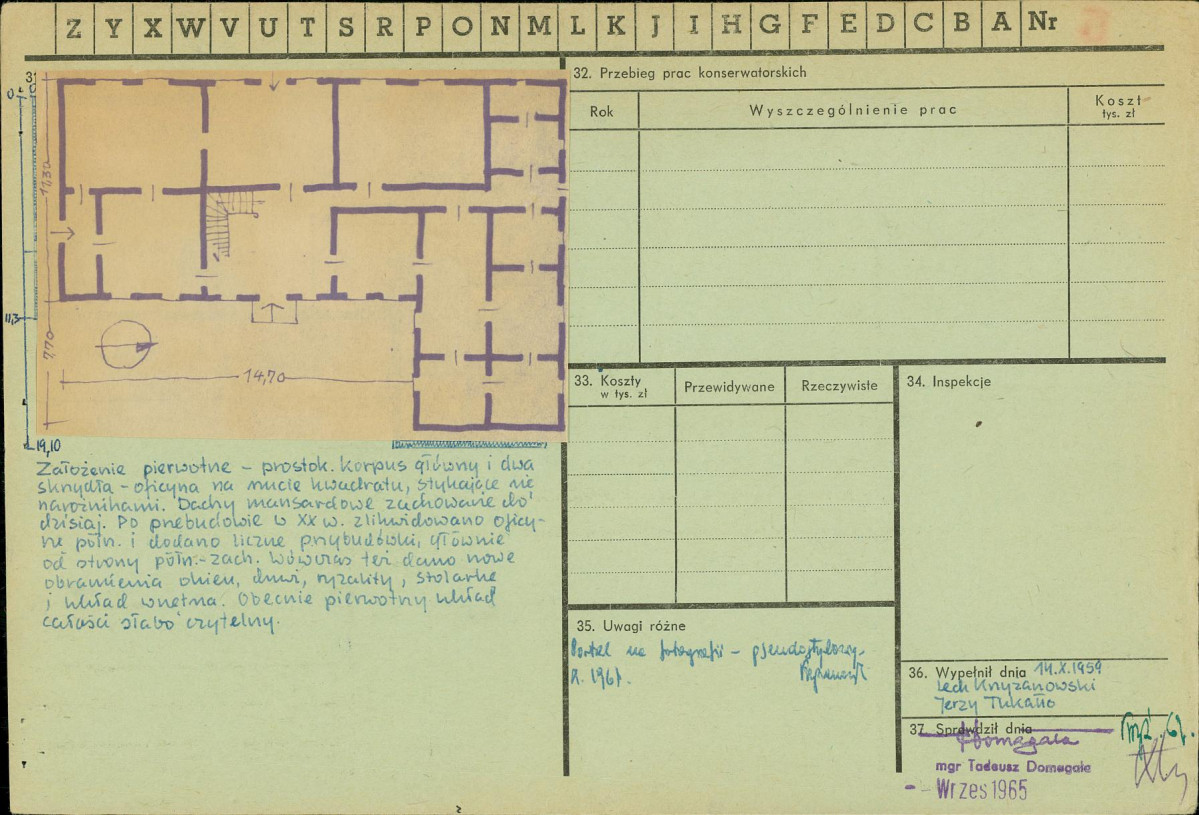 Z Y X W V U T S R P O N M L K J I H G F E D C B A Nr
31
0
11,3
19,10
7,70
14,70
Założenie pierwotne – prostok. korpus główny i dwa
skrzydła – oficyna na rzucie kwadratu, stykające się
narożnikami. Dachy mansardowe zachowane do
dzisiaj. Po przebudowie w XX w. zlikwidowano oficy-
nę półn. i dodano liczne przybudówki, głównie
od strony półn.-zach. Wówczas też dano nowe
obramienia okien, drzwi, ryzality, stolarkę
i układ wnętrza. Obecnie pierwotny układ
całości słabo czytelny.
32. Przebieg prac konserwatorskich
Rok
Wyszczególnienie prac
Koszt
tys. zł
33. Koszty
w tys. zł
Przewidywane
Rzeczywiste
34. Inspekcje
35. Uwagi różne
Portal na fotografii – pseudostylowy.
36. Wypełnił dnia 14.X.1959
Lech Krzyżanowski
Jerzy Tukałło
37. Sprawdził dnia
TDomagała
mgr Tadeusz Domagała
Wrzes 1965